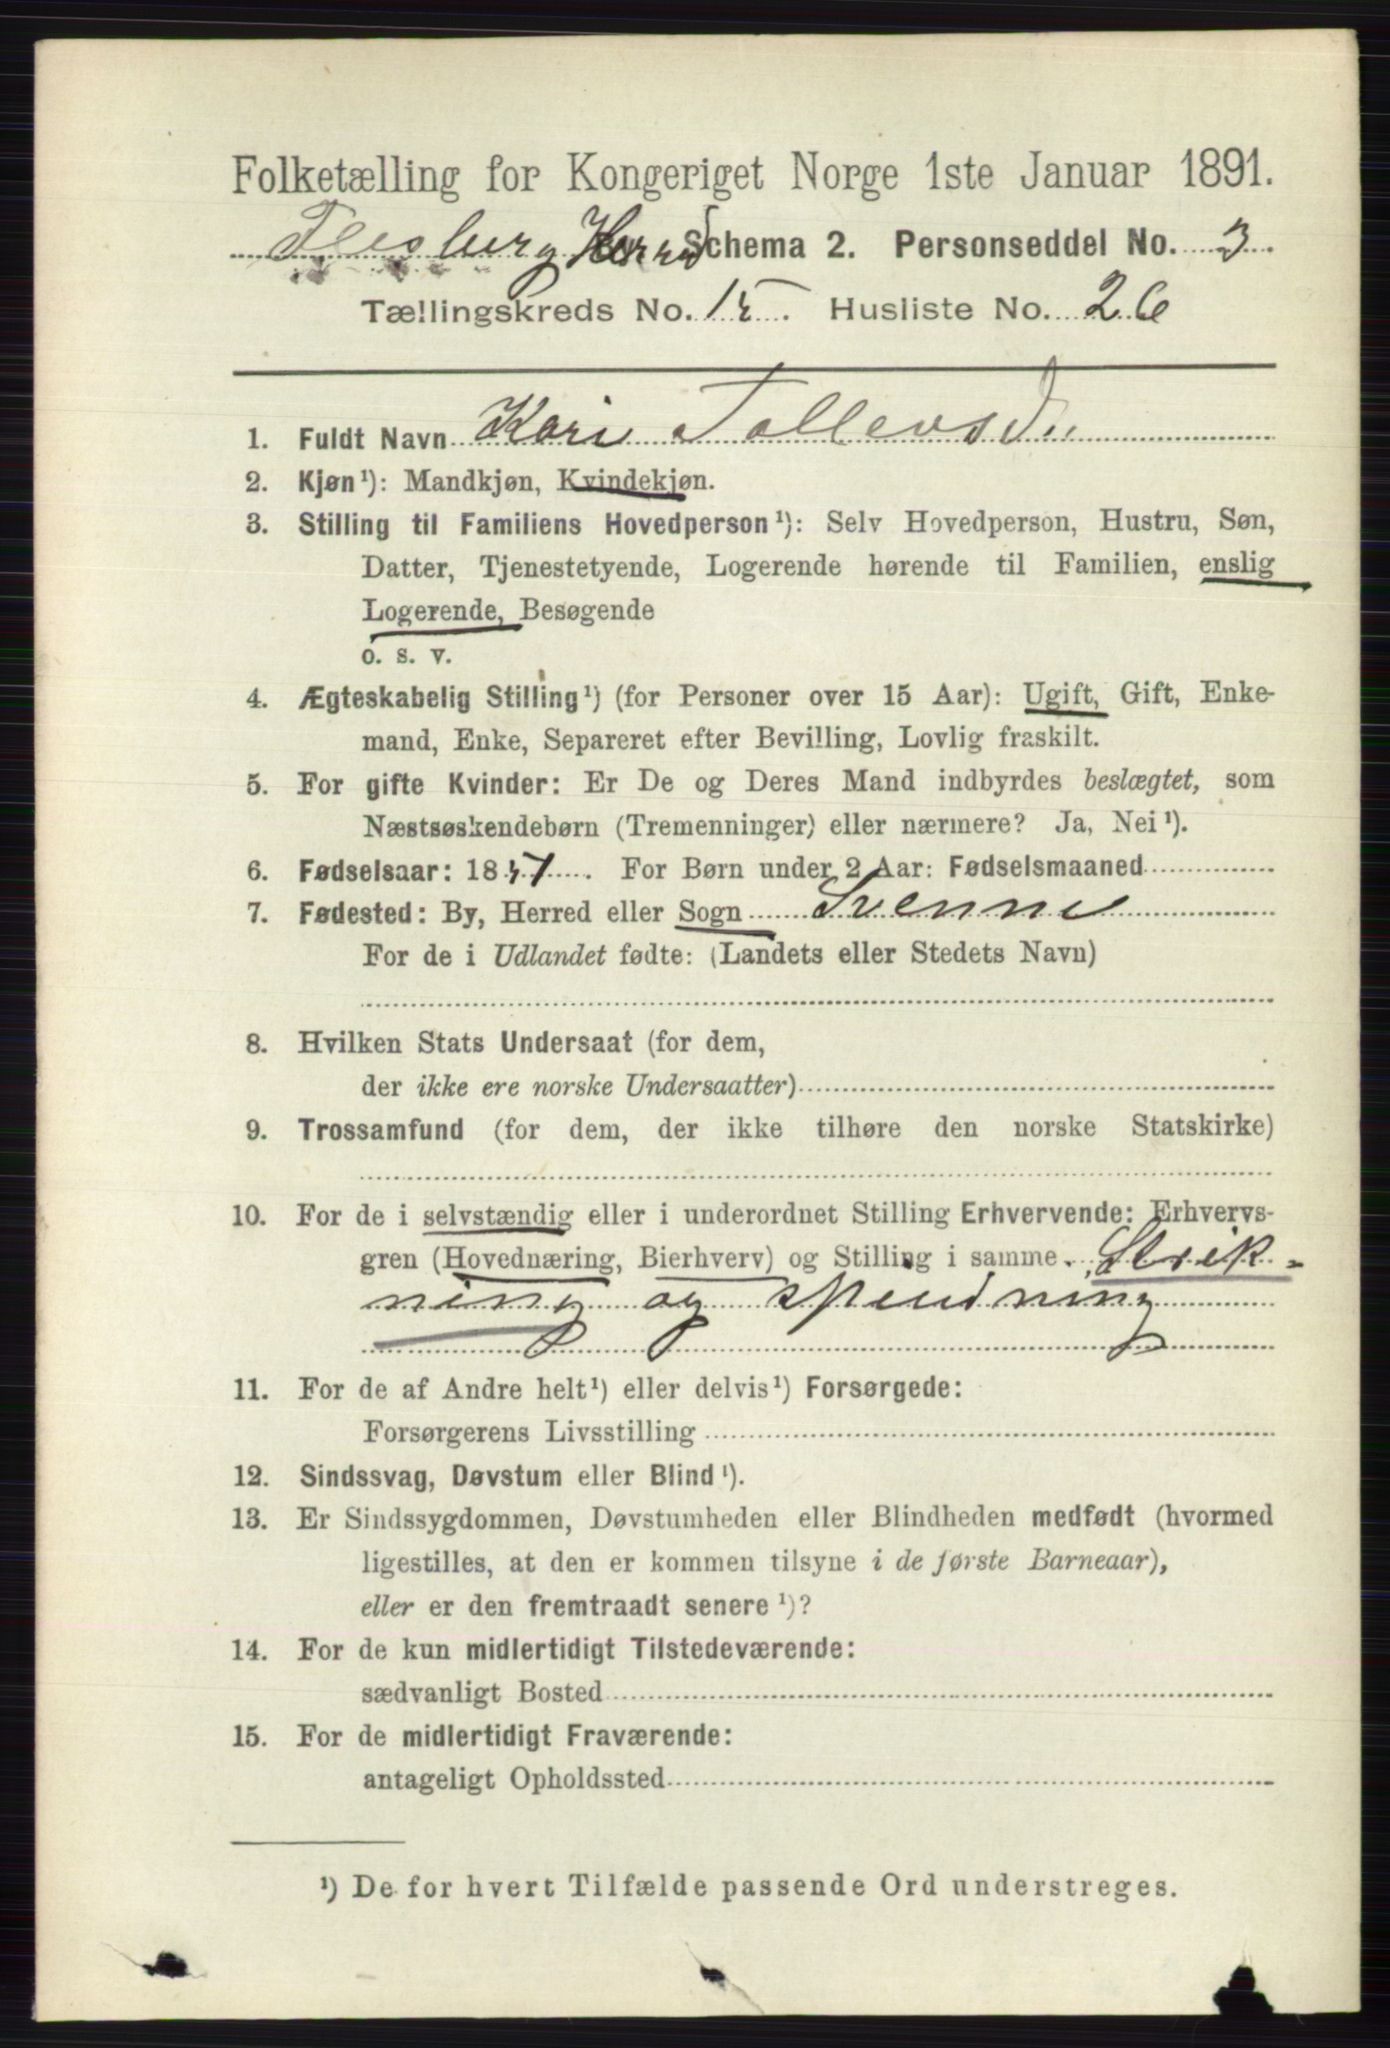 Folketælling for Kongeriget Norge 1ste Januar 1891.
Flesberg Herred Schema 2. Personseddel No. 3.
Tællingskreds No. 15. Husliste No. 26
1. Fuldt Navn Kari Tollevsdtr
2. Kjøn¹): Mandkjøn, Kvindekjøn.
3. Stilling til Familiens Hovedperson¹): Selv Hovedperson, Hustru, Søn,
Datter, Tjenestetyende, Logerende hørende til Familien, enslig
Logerende, Besøgende
o. s. v.
4. Ægteskabelig Stilling¹) (for Personer over 15 Aar): Ugift, Gift, Enke-
mand, Enke, Separeret efter Bevilling, Lovlig fraskilt.
5. For gifte Kvinder: Er De og Deres Mand indbyrdes beslægtet, som
Næstsøskendebørn (Tremenninger) eller nærmere? Ja, Nei¹).
6. Fødselsaar: 1851. For Børn under 2 Aar: Fødselsmaaned
7. Fødested: By, Herred eller Sogn Svenne
For de i Udlandet fødte: (Landets eller Stedets Navn)
8. Hvilken Stats Undersaat (for dem,
der ikke ere norske Undersaatter)
9. Trossamfund (for dem, der ikke tilhøre den norske Statskirke)
10. For de i selvstændig eller i underordnet Stilling Erhvervende: Erhvervs-
gren (Hovednæring, Bierhverv) og Stilling i samme. Strik-
ning og spinding
11. For de af Andre helt¹) eller delvis¹) Forsørgede:
Forsørgerens Livsstilling
12. Sindssvag, Døvstum eller Blind¹).
13. Er Sindssygdommen, Døvstumheden eller Blindheden medfødt (hvormed
ligestilles, at den er kommen tilsyne i de første Barneaar),
eller er den fremtraadt senere¹)?
14. For de kun midlertidigt Tilstedeværende:
sædvanligt Bosted
15. For de midlertidigt Fraværende:
antageligt Opholdssted
¹) De for hvert Tilfælde passende Ord understreges.